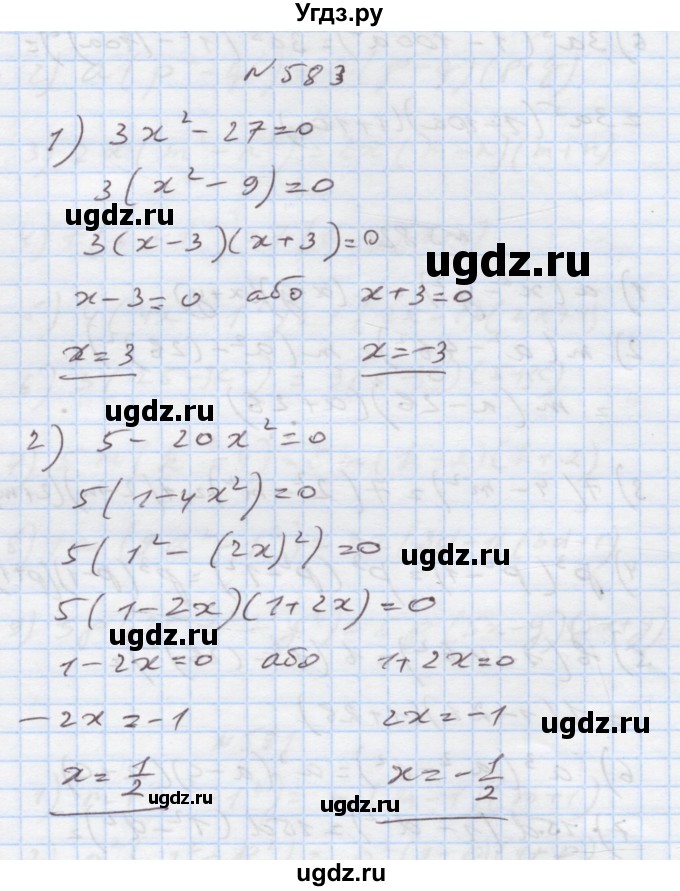 Угдз.ру
№583
1) 3x² - 27 = 0
3(x² - 9) = 0
ugdz.ru
3(x - 3)(x + 3) = 0
ugdz.ru
x - 3 = 0 або x + 3 = 0
x = 3 x = -3
ugdz.ru
2) 5 - 20x² = 0
5(1 - 4x²) = 0
5(1² - (2x)²) = 0
ugdz.ru
5(1 - 2x)(1 + 2x) = 0
ugdz.ru
1 - 2x = 0 або 1 + 2x = 0
-2x = -1 2x = -1
ugdz.ru
x = 1/2 x = -1/2
ugdz.ru ugdz.ru
ugdz.ru